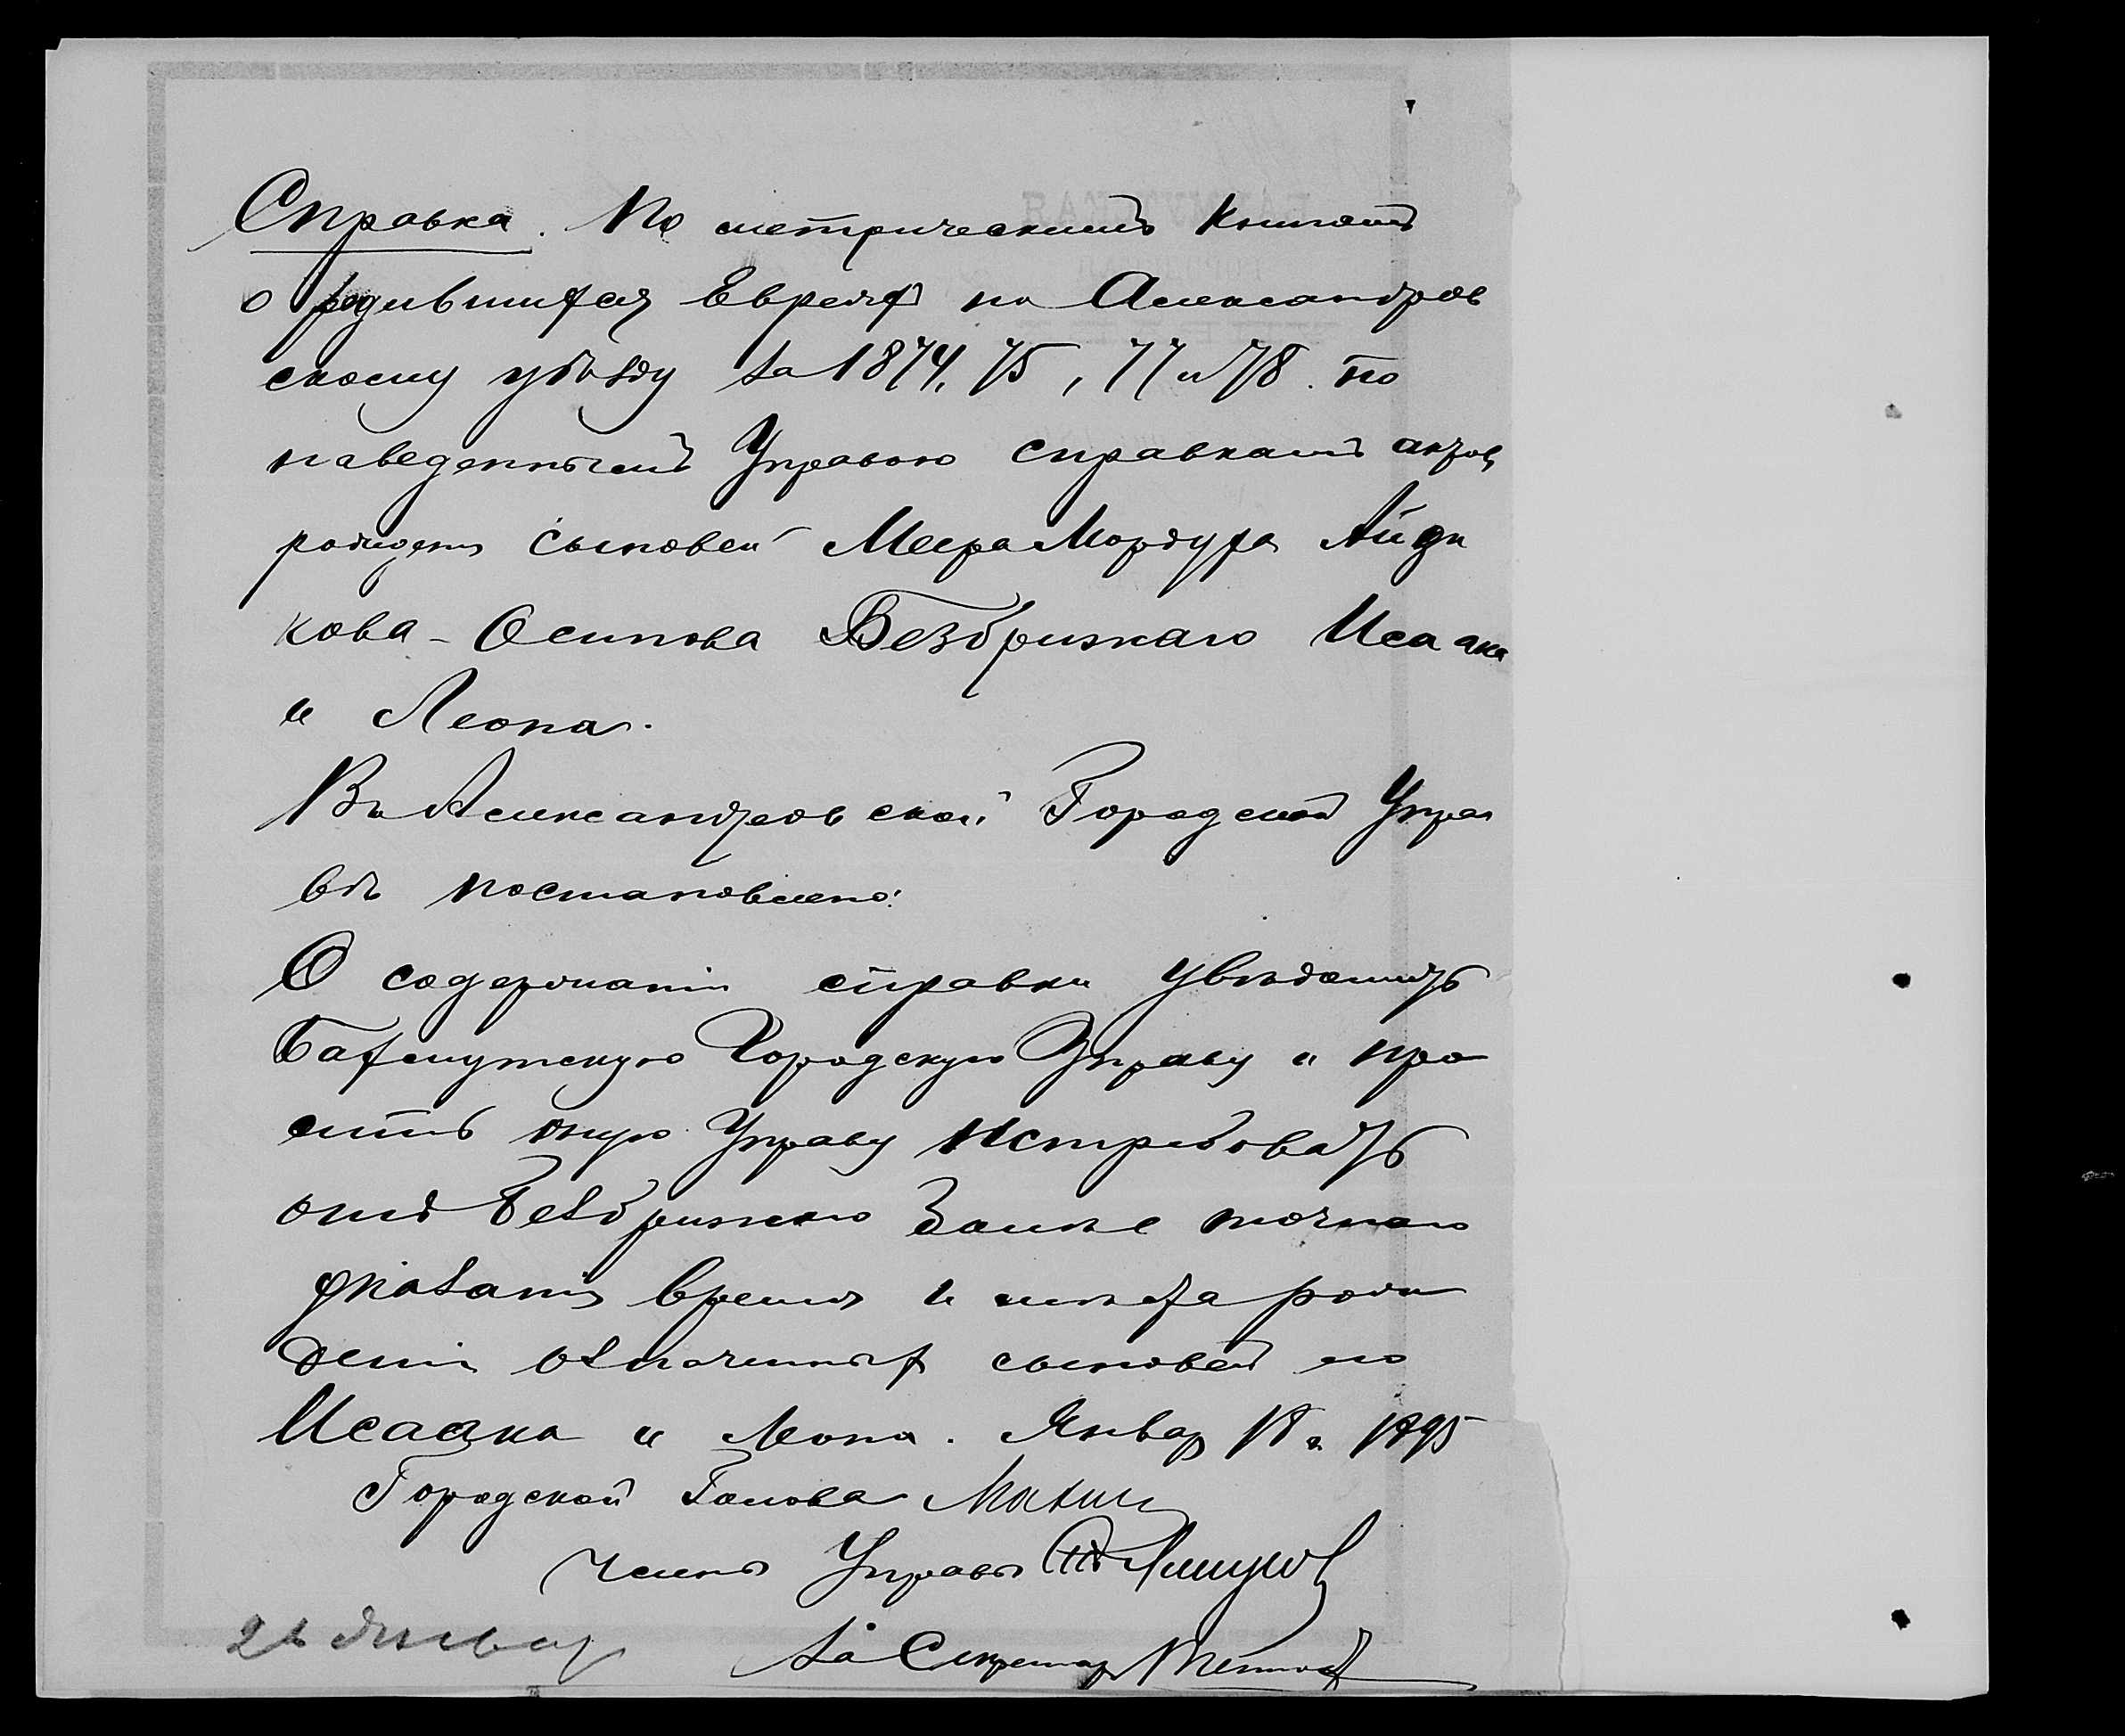 Справка. По метрическимъ книгамъ
о родившихся Евреяхъ по Александров
скому уѣзду за 1874, 75, 77 и 78. по
наведеннымъ Управою справкамъ актов
рожденія сыновей Меера Мордуха Айзи
кова-Осипова Безбрижнаго Исаака
и Леона.
Въ Александровской Городской Упра
вѣ постановлено:
О содержаніи справки увѣдомить
Бахмутскую Городскую Управу и про
сить оную Управу истребовать
отъ Безбрижнаго болѣе точнаго
указанія время и мѣста рож
денія означенныхъ сыновей его
Исаака и Леона. Январ 18 г. 1895
Городской Голова Махин
Членъ Управы
За Секретаря
21 Январ